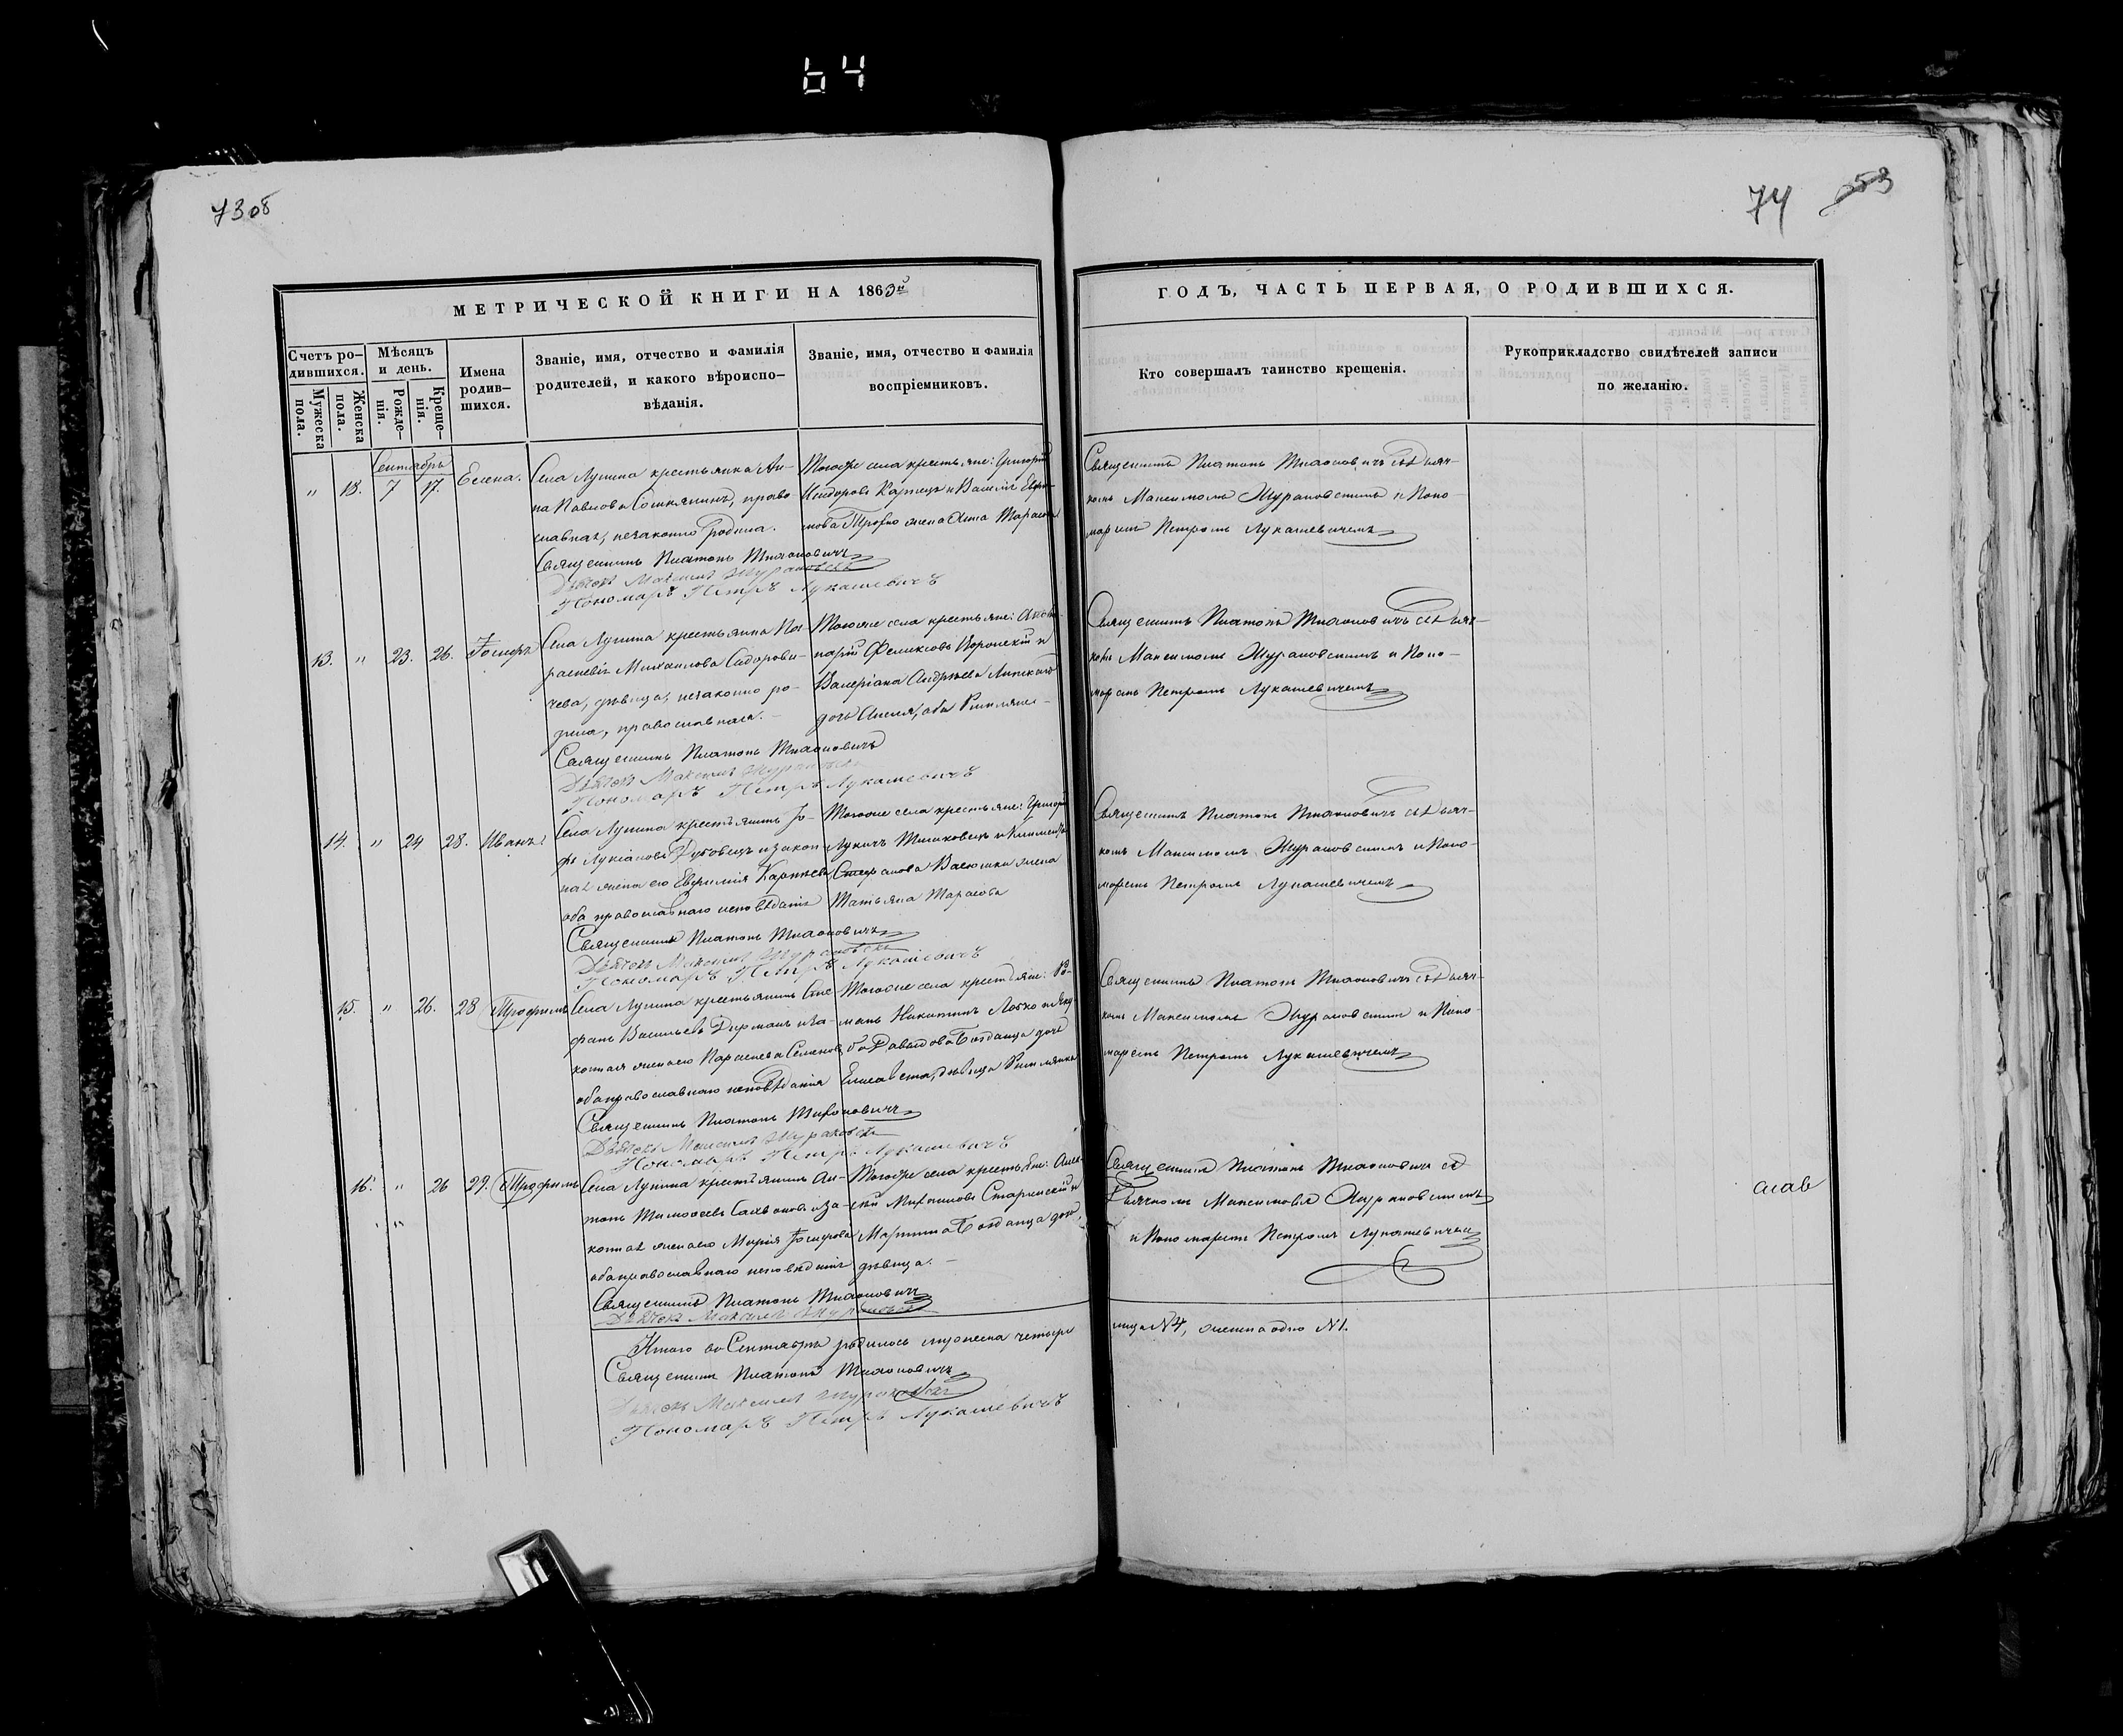 64
73 об
74
МЕТРИЧЕСКОЙ КНИГИ НА 1863й
ГОДЪ, ЧАСТЬ ПЕРВАЯ, О РОДИВШИХСЯ.
Счетъ ро-
дившихся.
Мужеска
пола.
Женска
пола.
Мѣсяцъ
и день.
Рожде-
нія.
Креще-
нія.
Имена
родив-
шихся.
Званіе, имя, отчество и фамилія
родителей, и какого вѣроиспо-
вѣданія.
Званіе, имя, отчество и фамилія
воспріемниковъ.
Кто совершалъ таинство крещенія.
Рукоприкладство свидѣтелей записи
по желанію.
Сентябрь
" 18. 7 17. Елена.
Села Лунина крестьянка Ан-
на Павлова, право-
славная, незаконно родила.
Священникъ Платонъ Тихоновичъ
Дьячекъ Максимъ Журановскій
Пономарь Петръ Лукашевичъ
Тогоже села крестьяне: Григорій
Исидоровъ Карпецъ и Василія
жена Анна Тарасова
Священникъ Платонъ Тихоновичъ съ Дьяч-
комъ Максимомъ Журановскимъ и Поно-
маремъ Петромъ Лукашевичемъ
13. " 23. 26. Іосифъ
Села Лунина крестьянка Па-
раскевія Михаилова Сидорови-
чева, дѣвица, незаконно ро-
дила, православная.
Священникъ Платонъ Тихоновичъ
Дьячекъ Максимъ Журановскій
Пономарь Петръ Лукашевичъ
Тогоже села крестьяне:
Феликсовъ и
Валеріана Андреева
дочь оба Римляне
Священникъ Платонъ Тихоновичъ съ Дьяч-
комъ Максимомъ Журановскимъ и Поно-
маремъ Петромъ Лукашевичемъ
14. " 24 28. Иванъ
Села Лунина крестьянинъ Іо-
фъ Лукіановъ Дубовецъ и закон-
ная жена его Евфимія Карпьева
оба православнаго исповѣданія
Священникъ Платонъ Тихоновичъ
Дьячекъ Максимъ Журановскій
Пономарь Петръ Лукашевичъ
Тогоже села крестьяне: Григорій
Лукичъ и
Стефанова жена
Татьяна Тарасова
Священникъ Платонъ Тихоновичъ съ Дьяч-
комъ Максимомъ Журановскимъ и Поно-
маремъ Петромъ Лукашевичемъ
15. " 26. 28 Трофимъ
Села Лунина крестьянинъ Сте-
фанъ Васильевъ Дирманъ и за-
конная жена его Параскева Семенова
оба православнаго исповѣданія
Священникъ Платонъ Тихоновичъ
Дьячекъ Максимъ Журановскій
Пономарь Петръ Лукашевичъ
Тогоже села крестьяне: Ро-
манъ Никитинъ
Давыдова Богданца дочь
Елисавета, дѣвица Римлянка
Священникъ Платонъ Тихоновичъ съ Дьяч-
комъ Максимомъ Журановскимъ и Поно-
маремъ Петромъ Лукашевичемъ
16. " 26 29. Трофимъ
Села Лунина крестьянинъ Ан-
тонъ Тимофеевъ и за-
конная жена его Марія Іосифова
оба православнаго исповѣданія
Священникъ Платонъ Тихоновичъ
Дьячекъ Максимъ Журановскій
Тогоже села крестьяне: Алек-
сѣй Михаиловъ Старинскій и
Мартина Богданца дочь,
дѣвица.
Священникъ Платонъ Тихоновичъ съ
Дьячкомъ Максимомъ Журановскимъ
и Пономаремъ Петромъ Лукашевичемъ
Итого въ Сентябрѣ родилось мужеска четыре
лица №4, женска одно №1.
Священникъ Платонъ Тихоновичъ
Дьячекъ Максимъ Журановскій
Пономарь Петръ Лукашевичъ